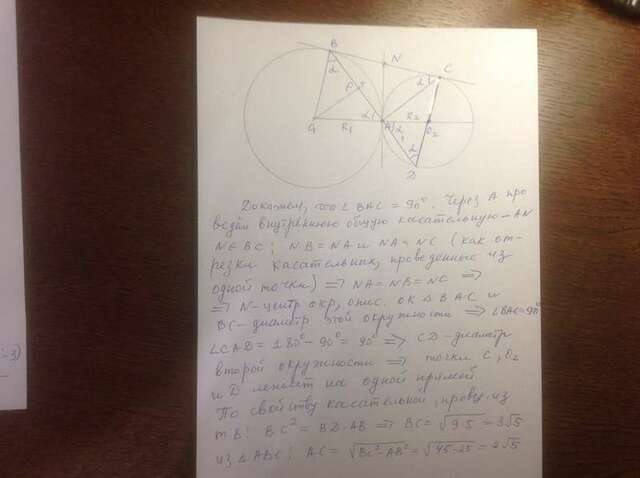 B
N
C
α
α
P
O₁
R₁
α
A
R₂
O₂
α
α
D
Докажем, что ∠BAC = 90°. Через A про
водём внутреннюю общую касательную – AN
N∈BC; NB=NA и NA=NC (как от-
резки касательных, проведенные из
одной точки) ⇒ NA=NB=NC ⇒
⇒ N-центр окр, опис. ок △BAC и
BC-диаметр этой окружности ⇒ ∠BAC=90°
∠CAD = 180°-90° = 90° ⇒ CD-диаметр
второй окружности ⇒ точки C, O₂
и D лежат на одной прямой
По свойству касательной, провед. из
т B: BC² = BD·AB ⇒ BC = √9·5 = 3√5
из △ABC: AC = √BC²-AB² = √45-25 = 2√5
-3)